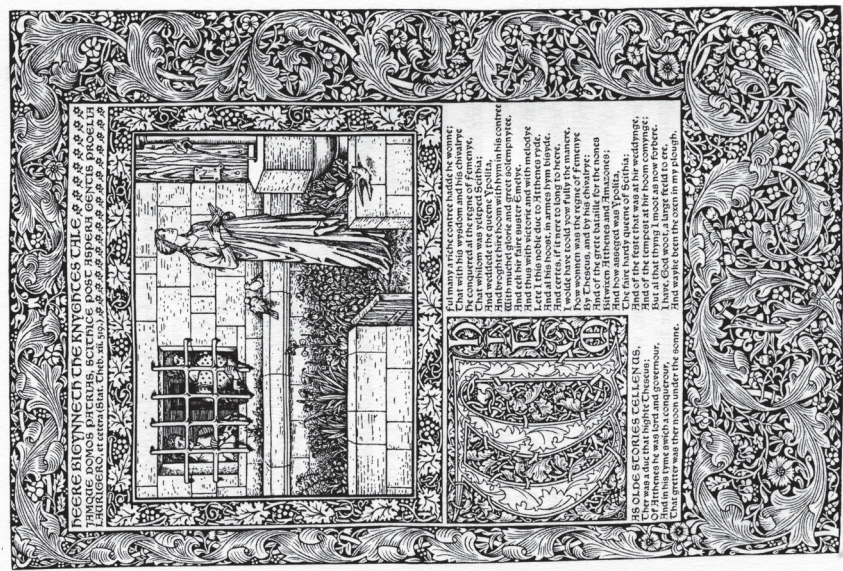 HEERE BIGYNNETH THE KNYGHTES TALE
JAMQUE DOMOS PATRIAS, SCITHICE POST ASPERA GENTIS PROELIA
LAURIGERO, et cetera (Stat. Theb. xii. 519.)
WHILOM
AS OLDE STORIES TELLEN US,
Ther was a duc that highte Theseus;
Of Atthenes he was lord and governour,
And in his tyme swich a conquerour,
That gretter was ther noon under the sonne.
Ful many a riche contree hadde he wonne;
That with his wysdom and his chivalrye
He conquered al the regne of Femenye,
That whilom was ycleped Scithia;
And weddede the queene Ypolita,
And broghte hire hoom with hym in his contree
With muchel glorie and greet solempnytee,
And eek hir faire suster Emelye.
And thus with victorie and with melodye
Lete I this noble duc to Atthenes ryde,
And al his hoost, in armes hym bisyde.
And certes, if it nere to long to heere,
I wolde have toold yow fully the manere,
How wonnen was the regne of Femenye
By Theseus, and by his chivalrye;
And of the grete bataille for the nones
Bitwixen Atthenes and Amazones;
And how asseged was Ypolita,
The faire hardy queene of Scithia;
And of the feste that was at hir weddynge,
And of the tempest at hir hoom comynge;
But al that thyng I moot as now forbere.
I have, God woot, a large feeld to ere,
And wayke been the oxen in my plough.